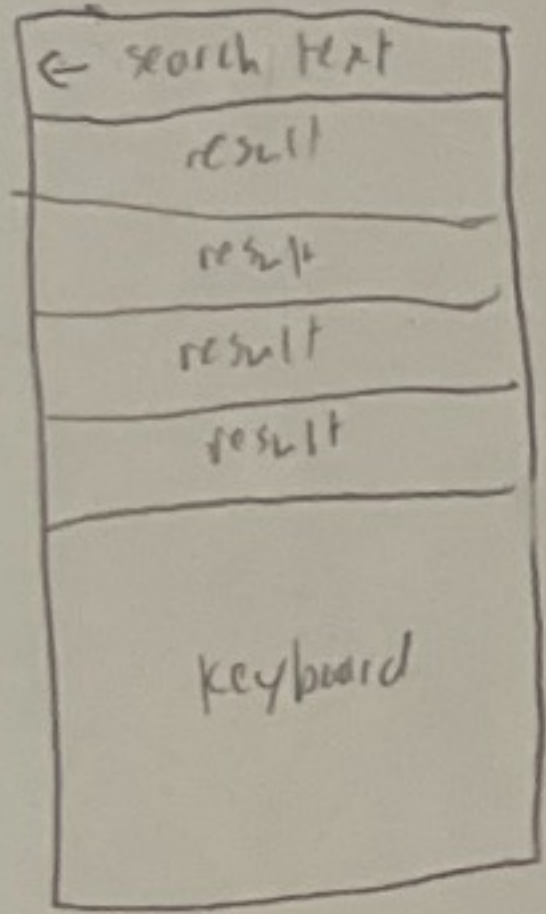 ← search text
result
result
result
result
keyboard